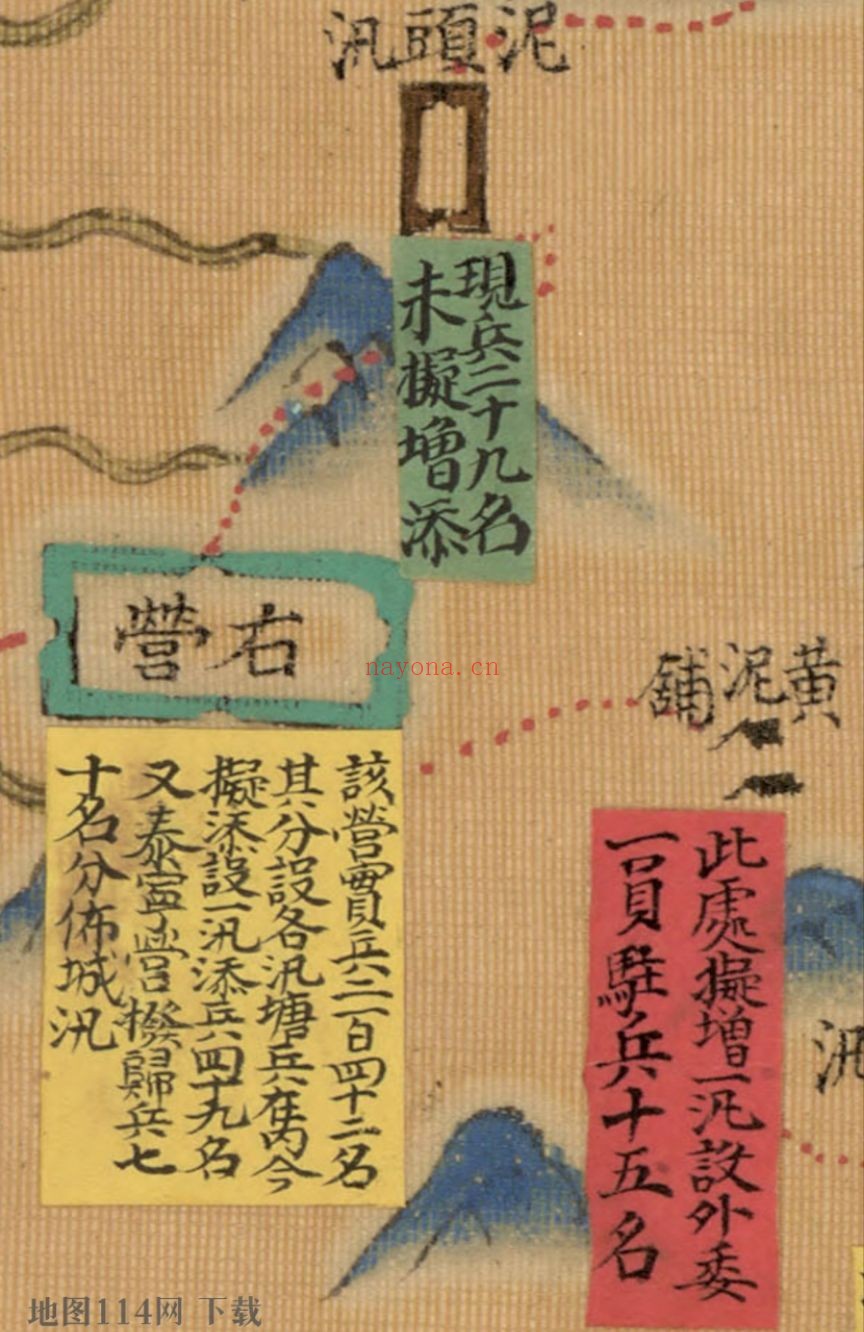 泥頭汛
現兵二十九名
未擬增添
右營
黃泥舖
該營實兵二百四十二名
其分設各汛塘兵在內今
擬添設一汛添兵四十九名
又泰寧營撥歸兵七
十名分佈城汛
此處擬增一汛設外委
一員駐兵十五名
汛
nayona.cn
地图114网 下载